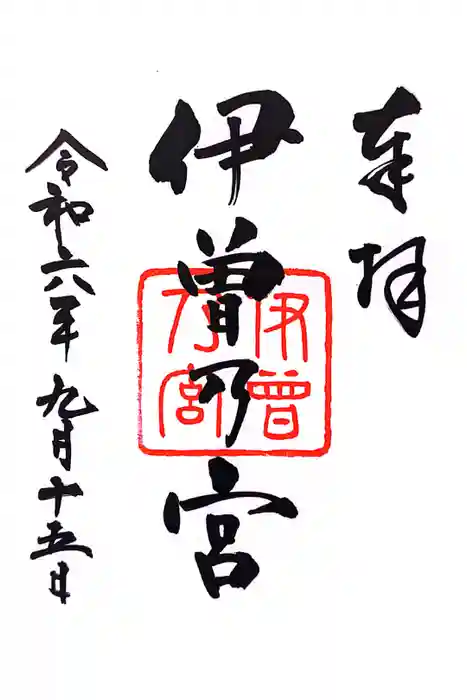 奉拝
伊曽乃宮
伊曽
乃宮
令和六年九月十五日